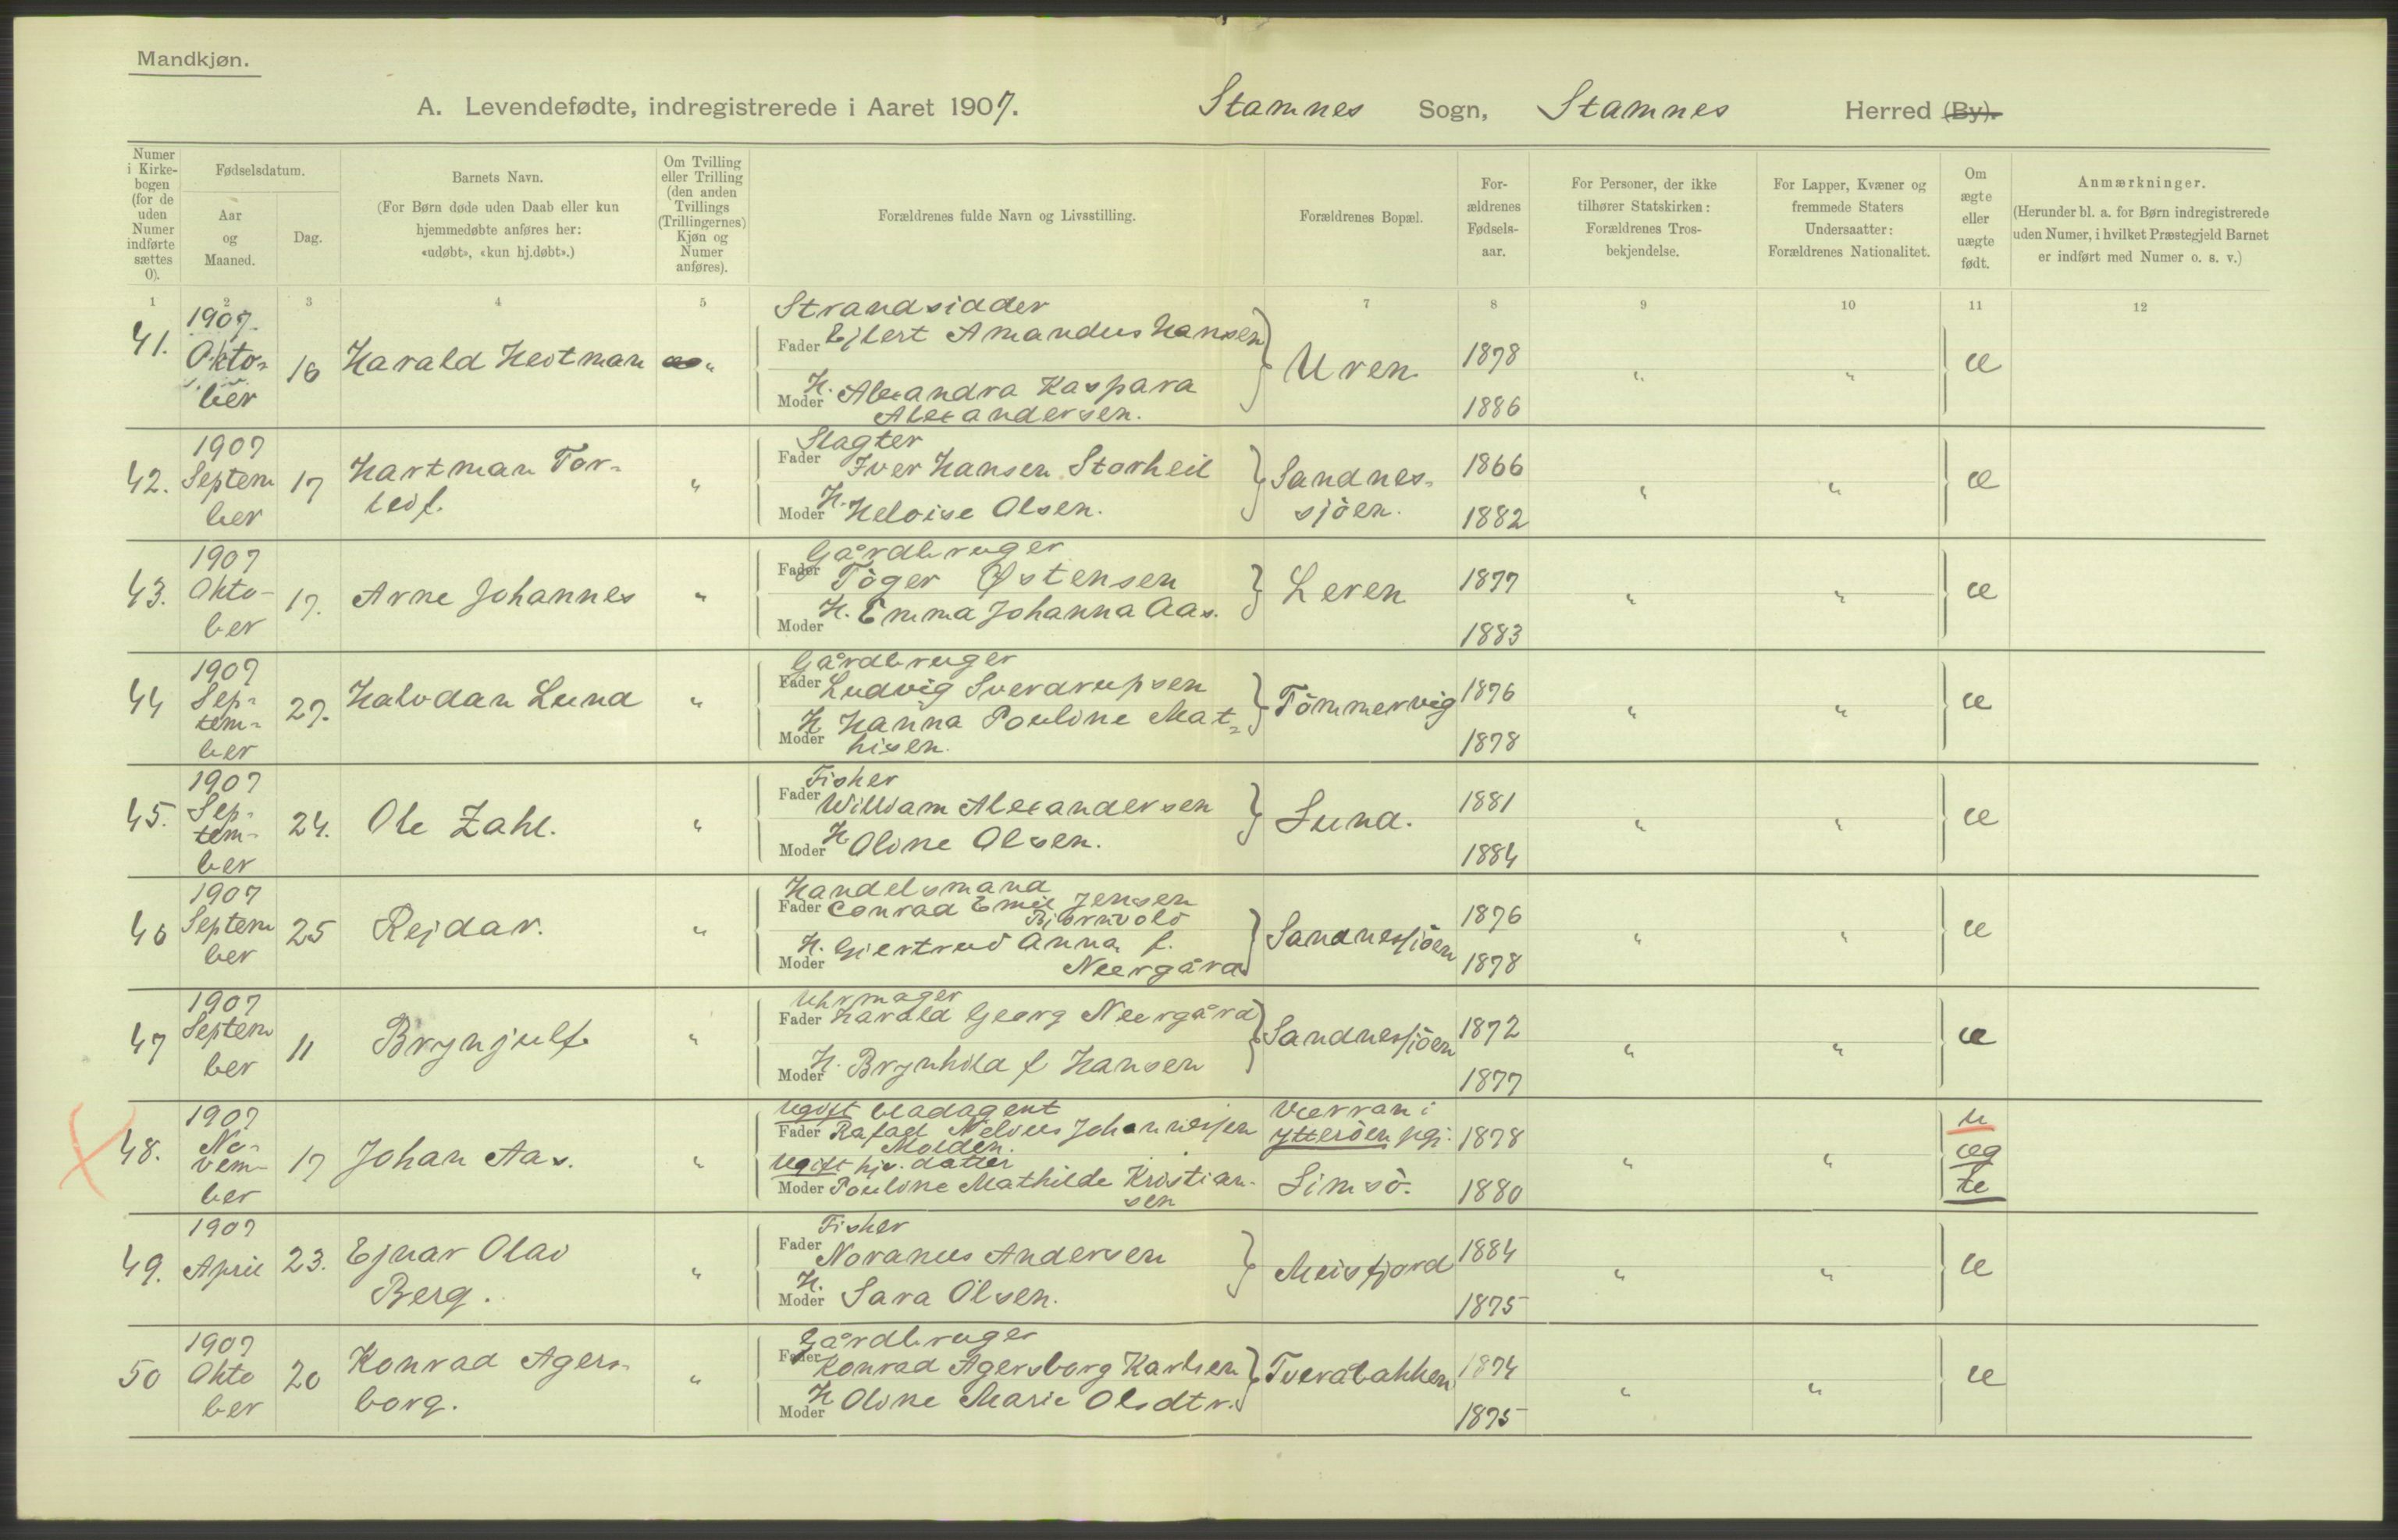 Mandkjøn.
A. Levendefødte, indregistrerede i Aaret 1907. Stamnes Sogn, Stamnes Herred (By).
Numer i Kirkebogen (for de uden Numer indførte sættes 0).
Fødselsdatum.
Aar og Maaned.
Dag.
Barnets Navn.
(For Børn døde uden Daab eller kun hjemmedøbte anføres her: «udøbt», «kun hj.døbt».)
Om Tvilling eller Trilling (den anden Tvillings (Trillingernes) Kjøn og Numer anføres).
Forældrenes fulde Navn og Livsstilling.
Forældrenes Bopæl.
For-ældrenes Fødsels-aar.
For Personer, der ikke tilhører Statskirken: Forældrenes Tros-bekjendelse.
For Lapper, Kvæner og fremmede Staters Undersaatter: Forældrenes Nationalitet.
Om ægte eller uægte født.
Anmærkninger.
(Herunder bl. a. for Børn indregistrerede uden Numer, i hvilket Præstegjeld Barnet er indført med Numer o. s. v.)
1 2 3 4 5 7 8 9 10 11 12
41. 1907. Okto-ber 16 Harald Hedtman "
Strandsidder
Fader Ejlert Amandus Hansen
Moder H. Alexandra Kaspara
Alexandersen.
Uren 1878 1886 " " æ
42. 1907 Septem ber 17 Hartman Tor-leif. "
Slagter
Fader Iver Hansen Storheil
Moder H. Heloise Olsen.
Sandnes-sjöen. 1866 1882 " " æ
43. 1907 Okto-ber 17. Arne Johannes "
Gårdbruger
Fader Töger Østensen
Moder H. Emma Johanna Aas.
Leren 1877 1883 " " æ
44 1907 Sep-tem-ber 27. Halvdan Lund "
Gårdbruger
Fader Ludvig Sverdrupsen
Moder H Hanna Pouline Mat-
hisen.
Tömmervig 1876 1878 " " æ
45. 1907 Sep-tem-ber 24. Ole Zahl. "
Fisker
Fader William Alexandersen
Moder H Oline Olsen.
Lund. 1881 1884 " " æ
46 1907 Septem ber 25 Rejdar. "
Handelsmand
Fader Conrad Emil Jensen
Björnvold
Moder H. Giertrud Anna f.
Neergård
Sandnessjöen 1876 1878 " " æ
47 1907 Septem ber 11 Brynjulf. "
Uhrmager
Fader Harald Georg Neergård
Moder H. Brynhild f Hansen
Sandnessjöen 1872 1877 " " æ
48. 1907 No-vem-ber 17 Johan Aas. "
Ugift bladagent
Fader Rafael Nelius Johannessen
Molden.
Ugift hjv. datter
Moder Pouline Mathilde Kristian-
sen
Værran i
Ytteröen pgj. 1878
Limsö. 1880 " " u æg te
49. 1907 April 23. Ejnar Olai Berg. "
Fisker
Fader Noranus Andersen
Moder H. Sara Olsen.
Meisfjord 1884 1875 " " æ
50 1907 Okto ber 20 Konrad Agers-borg. "
Gårdbruger
Fader Konrad Agersborg Karlsen
Moder H Oline Marie Olsdtr.
Tveråbakken 1874 1875 " " æ